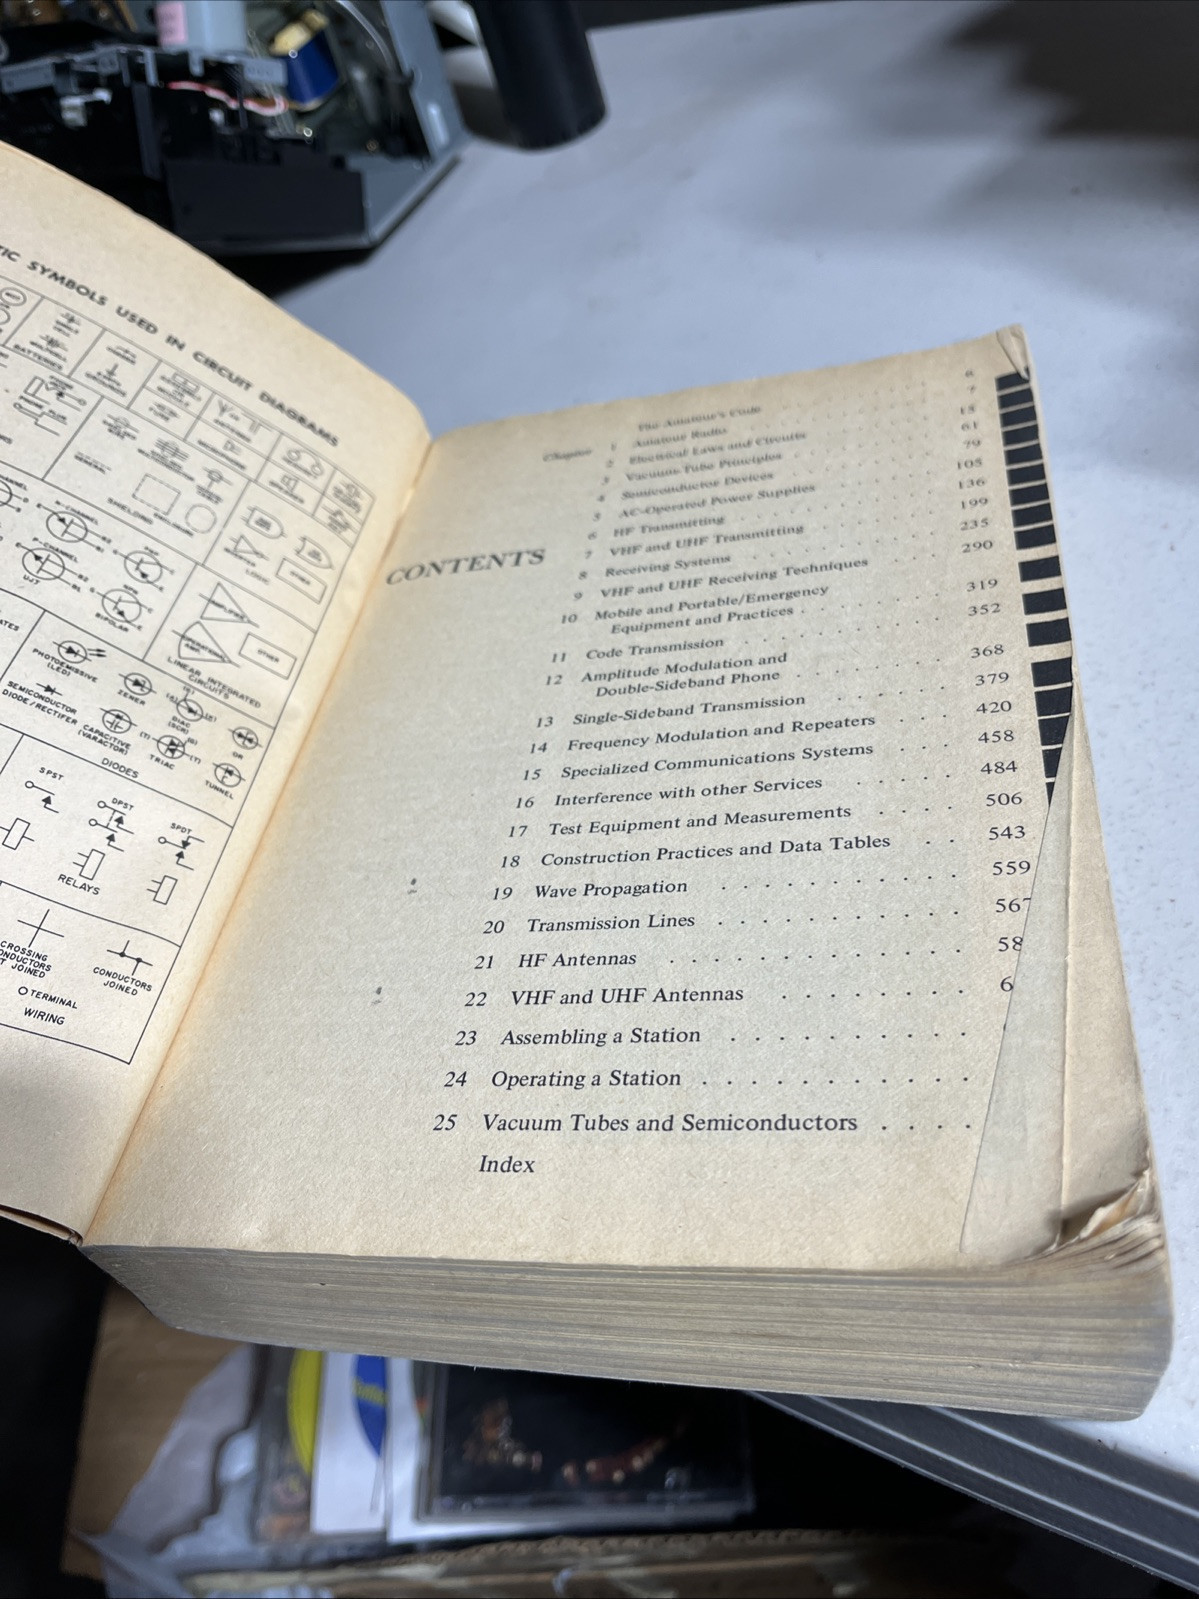 TIC SYMBOLS USED IN CIRCUIT DIAGRAMS
BATTERIES
GROUNDS
SHIELDING
LOGIC
OTHER
N-CHANNEL
P-CHANNEL
UJT
BIPOLAR
OTHER
LINEAR INTEGRATED
CIRCUITS
PHOTOEMISSIVE
(LED)
ZENER
SEMICONDUCTOR
DIODE/RECTIFIER
CAPACITIVE
(VARACTOR)
TRIAC
TUNNEL
DIODES
SPST
DPST
SPDT
RELAYS
CROSSING
CONDUCTORS
JOINED
CONDUCTORS
JOINED
TERMINAL
WIRING
CONTENTS
The Amateur's Code 6
Chapter 1 Amateur Radio 7
2 Electrical Laws and Circuits 15
3 Vacuum-Tube Principles 61
4 Semiconductor Devices 79
5 AC-Operated Power Supplies 105
6 HF Transmitting 136
7 VHF and UHF Transmitting 199
8 Receiving Systems 235
9 VHF and UHF Receiving Techniques 290
10 Mobile and Portable/Emergency
Equipment and Practices 319
11 Code Transmission 352
12 Amplitude Modulation and
Double-Sideband Phone 368
13 Single-Sideband Transmission 379
14 Frequency Modulation and Repeaters 420
15 Specialized Communications Systems 458
16 Interference with other Services 484
17 Test Equipment and Measurements 506
18 Construction Practices and Data Tables 543
19 Wave Propagation 559
20 Transmission Lines 567
21 HF Antennas 58
22 VHF and UHF Antennas 6
23 Assembling a Station
24 Operating a Station
25 Vacuum Tubes and Semiconductors
Index